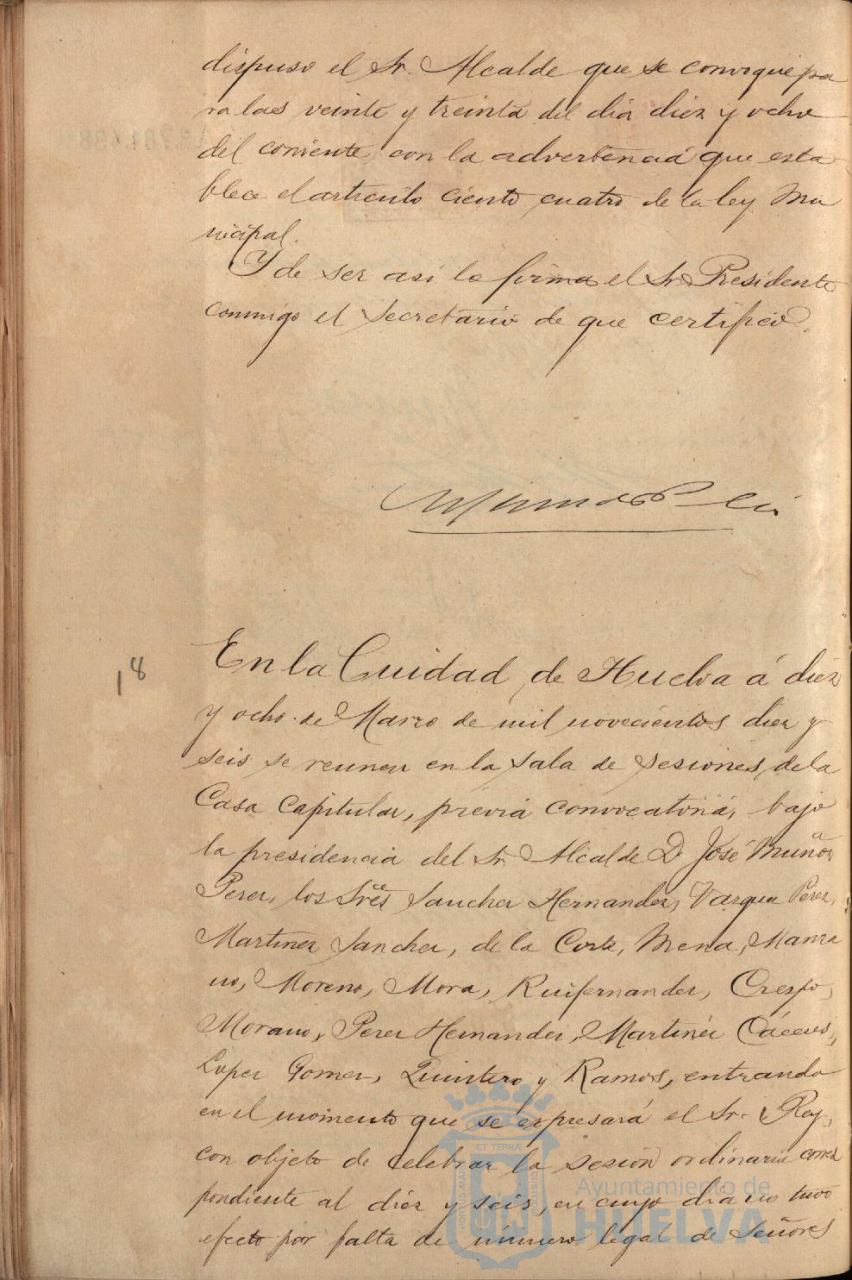 dispuso el Sr. Alcalde que se convoque pa
ra las veinte y treinta del dia diez y ocho
del corriente, con la advertencia que esta
blece el articulo ciento cuatro de la ley Mu
nicipal.
Y de ser asi lo firma el Sr. Presidente
conmigo el Secretario de que certifico.
18
En la Cuidad de Huelva á diez
y ocho de Marzo de mil novecientos diez y
seis se reunen en la sala de sesiones de la
Casa Capitular, previa convocatoria, bajo
la presidencia del Sr. Alcalde D. José Muñoz
Perez, los Sres Sanchez Hernandez, Vazquez Perez,
Martinez Sanchez, de la Corte, Mena, Manza
no, Moreno, Mora, Ruifernandez, Crespo,
Morano, Perez Hernandez, Martinez Cáceres,
Lopez Gomez, Quintero y Ramos, entrando
en el momento que se expresará el Sr. Rey,
con objeto de celebrar la sesion ordinaria corres
pondiente al diez y seis, en cuyo dia no tuvo
efecto por falta de numero legal de Señores
Ayuntamiento de
HUELVA